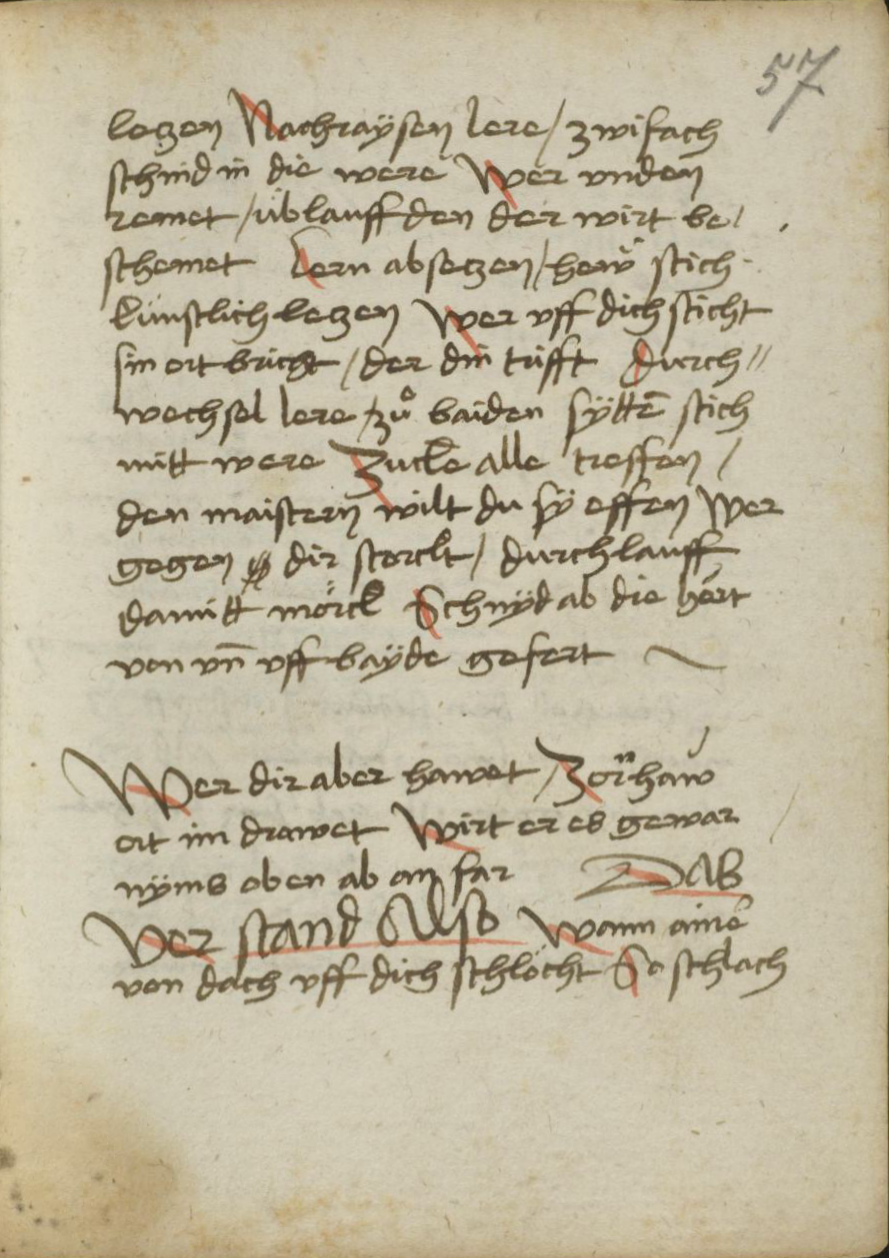 57
letzen Nachraÿsen lere / zwifach
schnid in die were Wer vnden
remet / üblauff den der wirt be /
schemet Lern absetzen / hew stich
kunstlich letzen Wer vff dich sticht
sin ort bricht / der din trifft Durch //
wechsel lere / zů baiden sÿttẽ stich
mitt were Zucke alle treffen /
den maistern wilt du sÿ effen Wer
gegen dir störckt / durchlauff
damitt mörck Schnÿd ab die hört
von vñ vff baÿde gefert ~
Wer dir aber hawet / Zorñhaw
ort im drawet Wirt er es gewar
nÿms oben ab on far DAS
Ver stand Also Wann ainer
von dach vff dich schlöcht So schlach